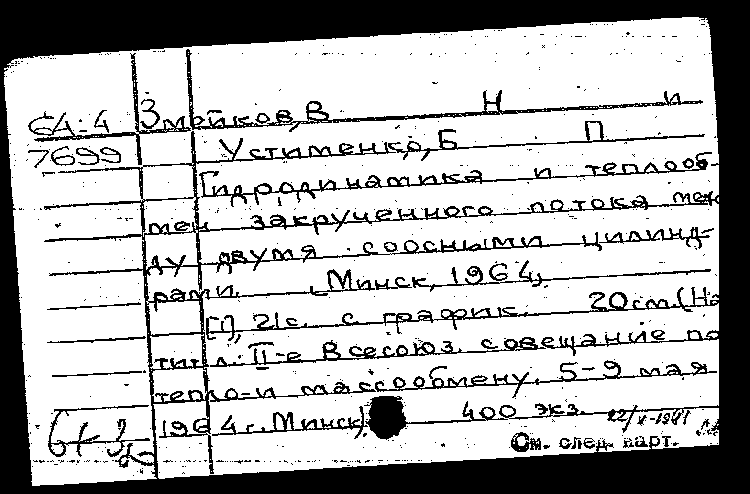 64:4 Змейков, В Н и
7699 Устименко, Б П
Гидродинамика и теплооб-
мен закрученного потока меж
ду двумя соосными цилинд-
рами. [Минск, 1964,
[1], 21с. с график. 20см. (На
тит. л.: II-е Всесоюз. совещание по
тепло-и массообмену. 5-9 мая
1964 г. Минск). 400 экз.
См. след. карт.